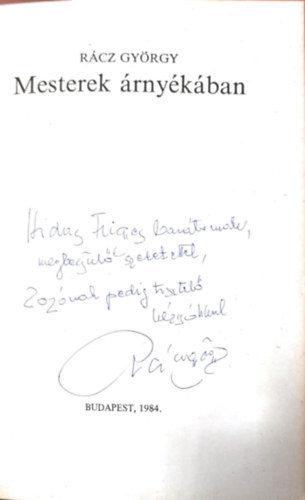 RÁCZ GYÖRGY
Mesterek árnyékában
Hidas Frigyes barátomnak,
megbecsülő szeretettel,
Zozónak pedig tisztelő
kézcsókkal
Rácz György
BUDAPEST, 1984.